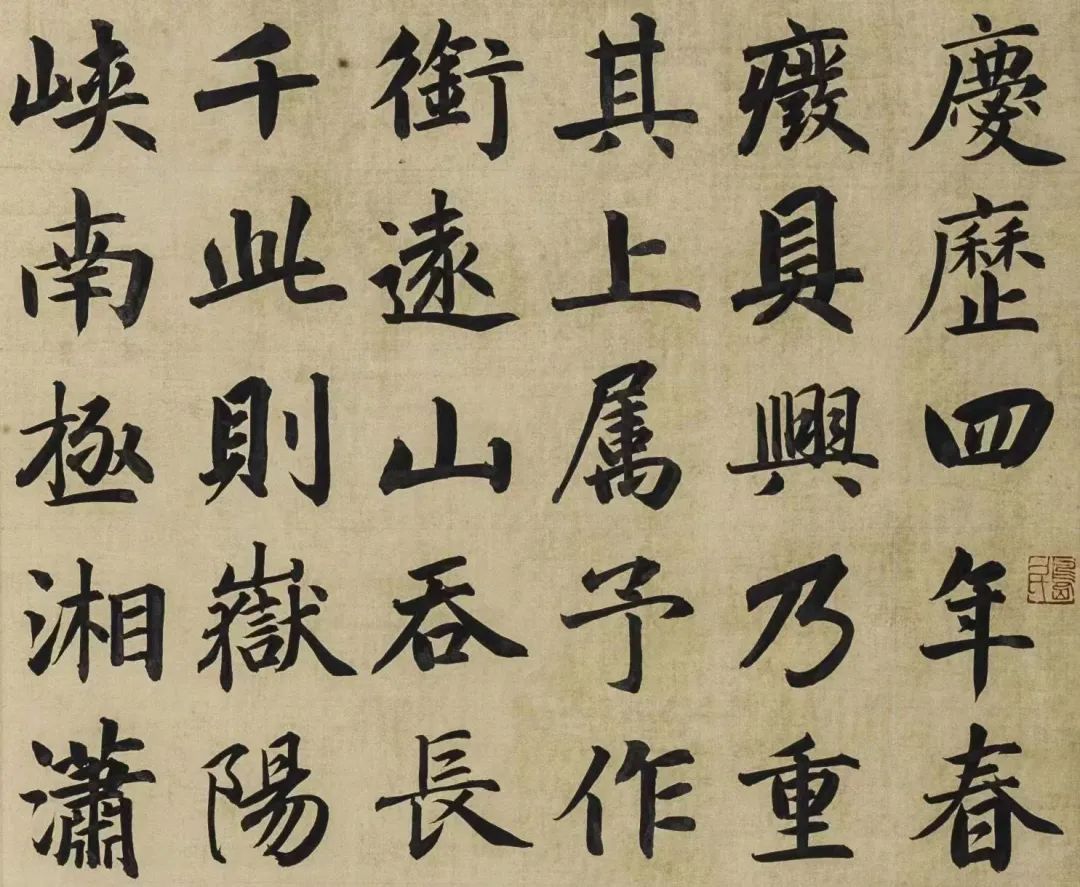 慶歷四年春
癈具興乃重
其上属予作
銜遠山吞長
千此則嶽陽
峽南極湘瀟